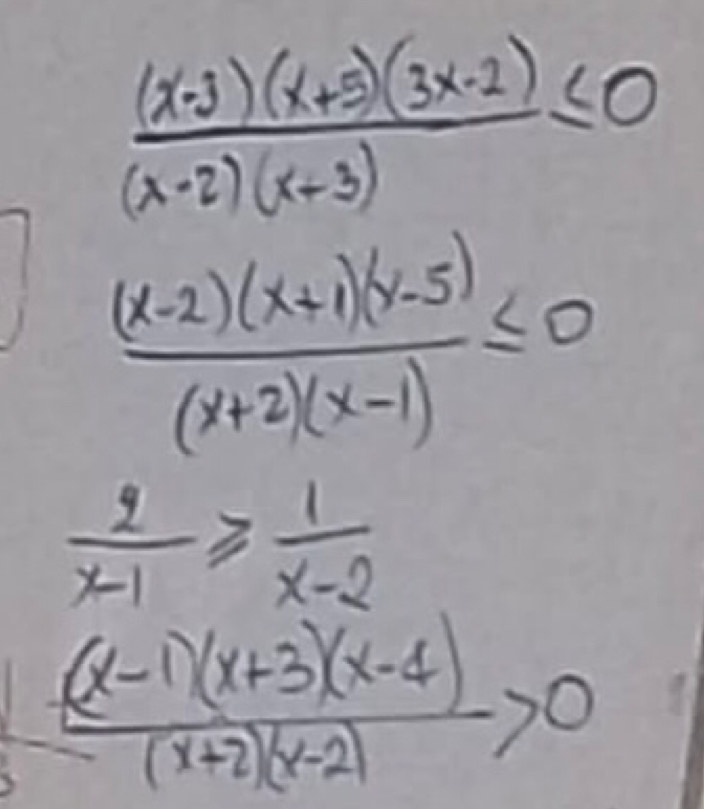 (x-3)(x+5)(3x-2)/(x-2)(x+3) ≤ 0
(x-2)(x+1)(x-5)/(x+2)(x-1) ≤ 0
2/x-1 ≥ 1/x-2
(x-1)(x+3)(x-4)/(x+2)(x-2) > 0